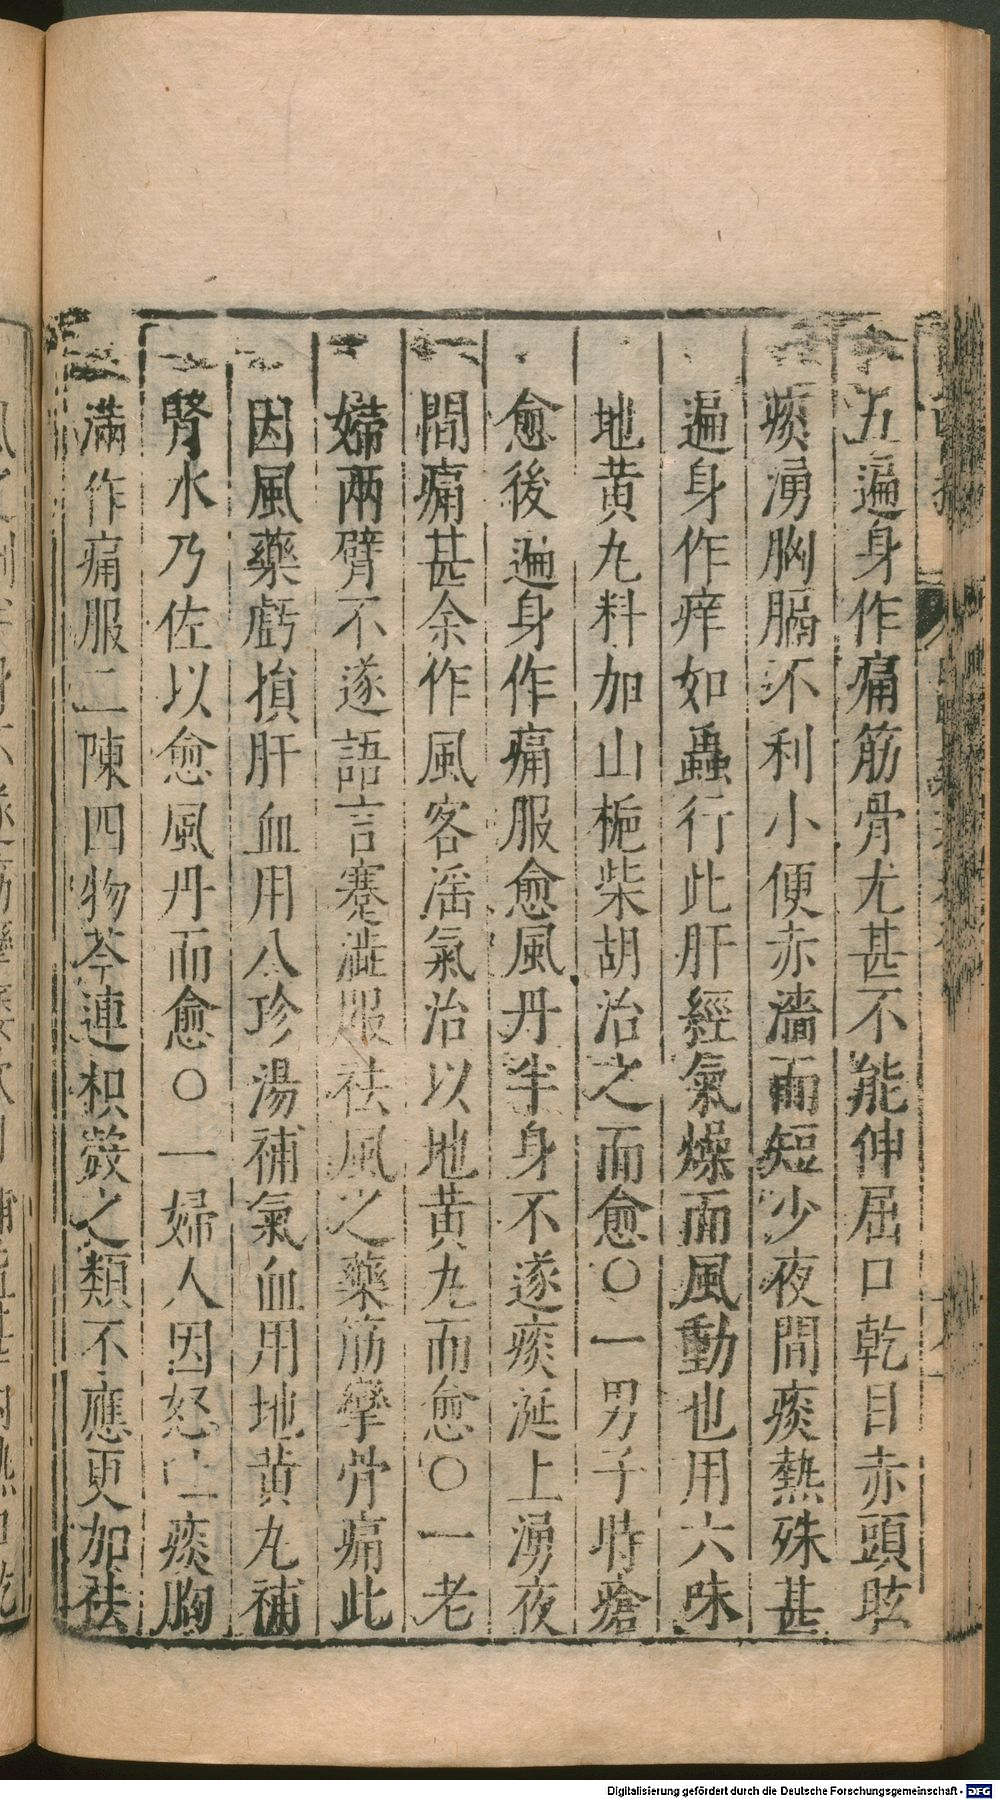 五遍身作痛筋骨尤甚不能伸屈口乾目赤頭眩
痰湧胸膈不利小便赤濇而短少夜間痰熱殊甚
遍身作痒如蟲行此肝經氣燥而風動也用六味
地黄丸料加山梔柴胡治之而愈○一男子時瘡
愈後遍身作痛服愈風丹半身不遂痰涎上湧夜
間痛甚余作風客淫氣治以地黄丸而愈○一老
婦兩臂不遂語言蹇澁服祛風之藥筋攣骨痛此
因風藥虧損肝血用八珍湯補氣血用地黄丸補
腎水乃佐以愈風丹而愈○一婦人因怒吐痰胸
滿作痛服二陳四物芩連枳殼之類不應更加祛
Digitalisierung gefördert durch die Deutsche Forschungsgemeinschaft - DFG